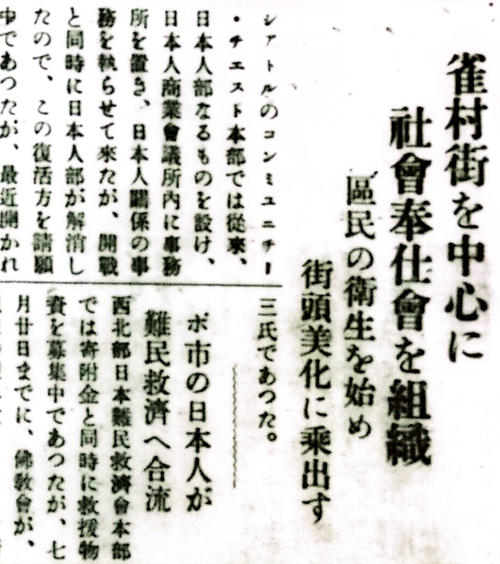 雀村街を中心に
社會奉仕會を組織
區民の衛生を始め
街頭美化に乗出す
シアトルのコンミユニチー
・チエスト本部では從來、
日本人部なるものを設け、
日本人商業會議所内に事務
所を置き、日本人關係の事
務を執らせて來たが、開戰
と同時に日本人部が解消し
たので、この復活方を請願
中であつたが、最近開かれ
三氏であつた。
ポ市の日本人が
難民救濟へ合流
西北部日本難民救濟會本部
では寄附金と同時に救援物
資を募集中であつたが、七
月廿日までに、佛敎會が、